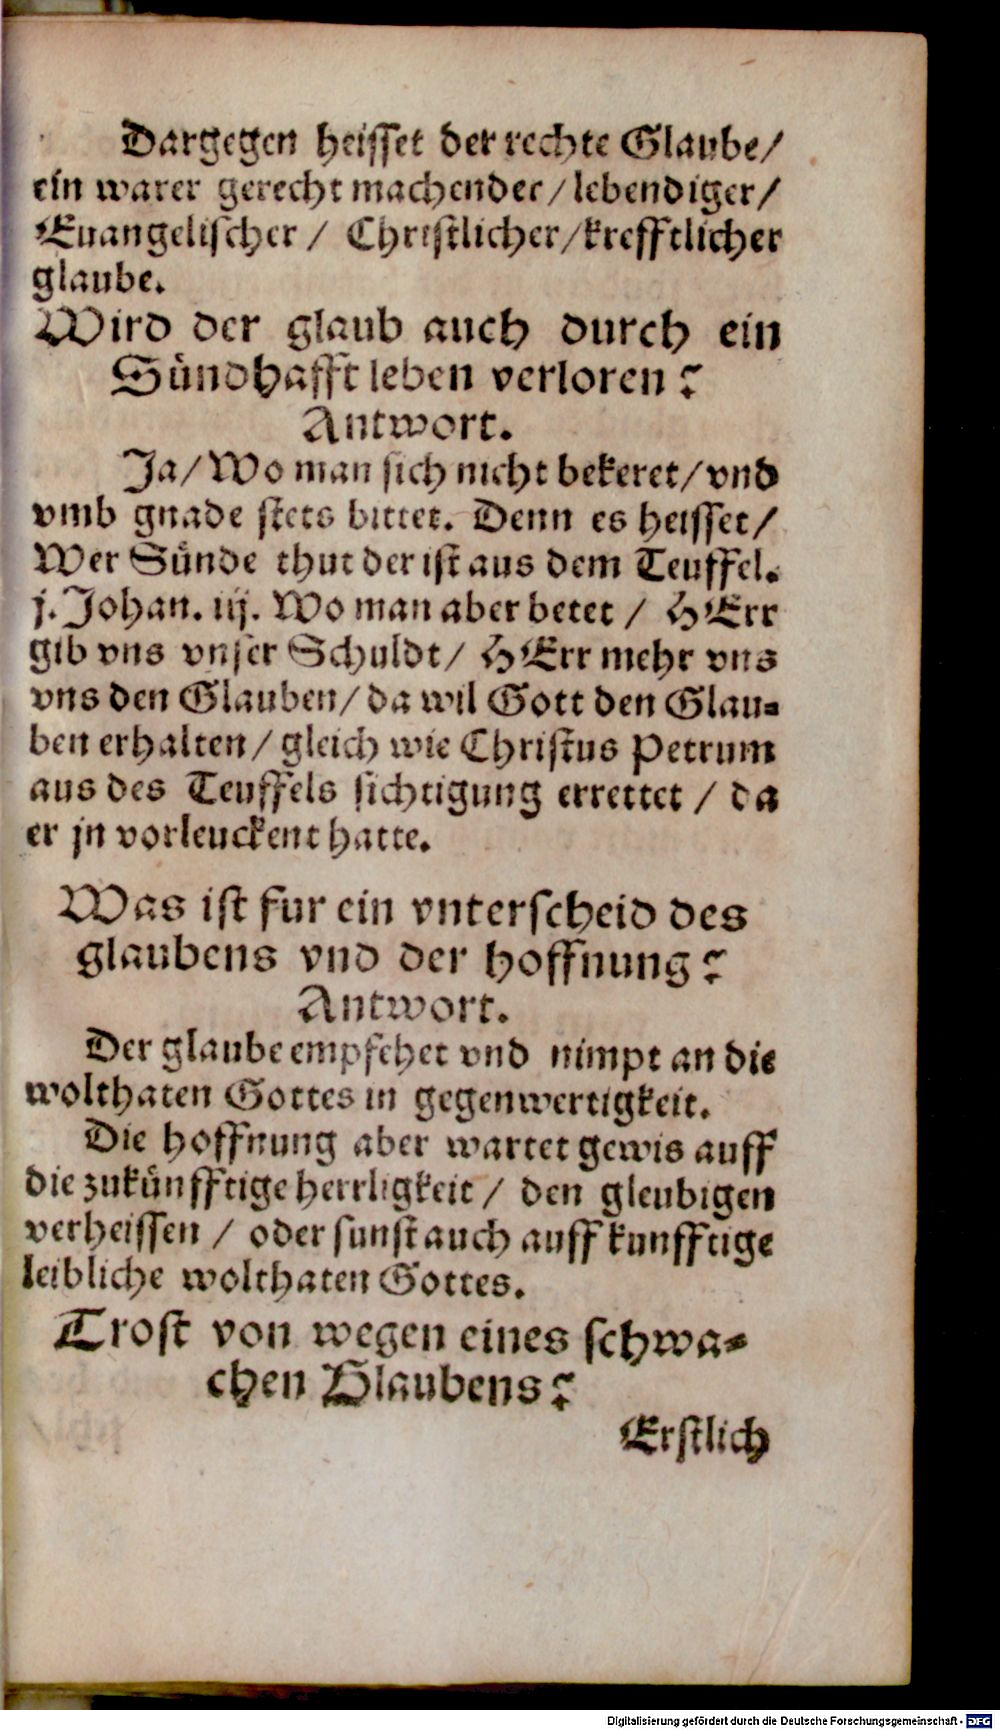 Dargegen heisset der rechte Glaube/
ein warer gerecht machender/lebendiger/
Euangelischer/ Christlicher/krefftlicher
glaube.
Wird der glaub auch durch ein
Sündhafft leben verloren?
Antwort.
Ja/Wo man sich nicht bekeret/vnd
vmb gnade stets bittet. Denn es heisset/
Wer Sünde thut der ist aus dem Teuffel.
j. Johan. iij. Wo man aber betet/ HErr
gib vns vnser Schuldt/ HErr mehr vns
vns den Glauben/da wil Gott den Glau-
ben erhalten/gleich wie Christus Petrum
aus des Teuffels sichtigung errettet/ da
er jn vorleuckent hatte.
Was ist fur ein vnterscheid des
glaubens vnd der hoffnung?
Antwort.
Der glaube empfehet vnd nimpt an die
wolthaten Gottes in gegenwertigkeit.
Die hoffnung aber wartet gewis auff
die zukünfftige herrligkeit/ den gleubigen
verheissen/ oder sunst auch auff kunfftige
leibliche wolthaten Gottes.
Trost von wegen eines schwa-
chen Glaubens?
Erstlich
Digitalisierung gefördert durch die Deutsche Forschungsgemeinschaft - DFG